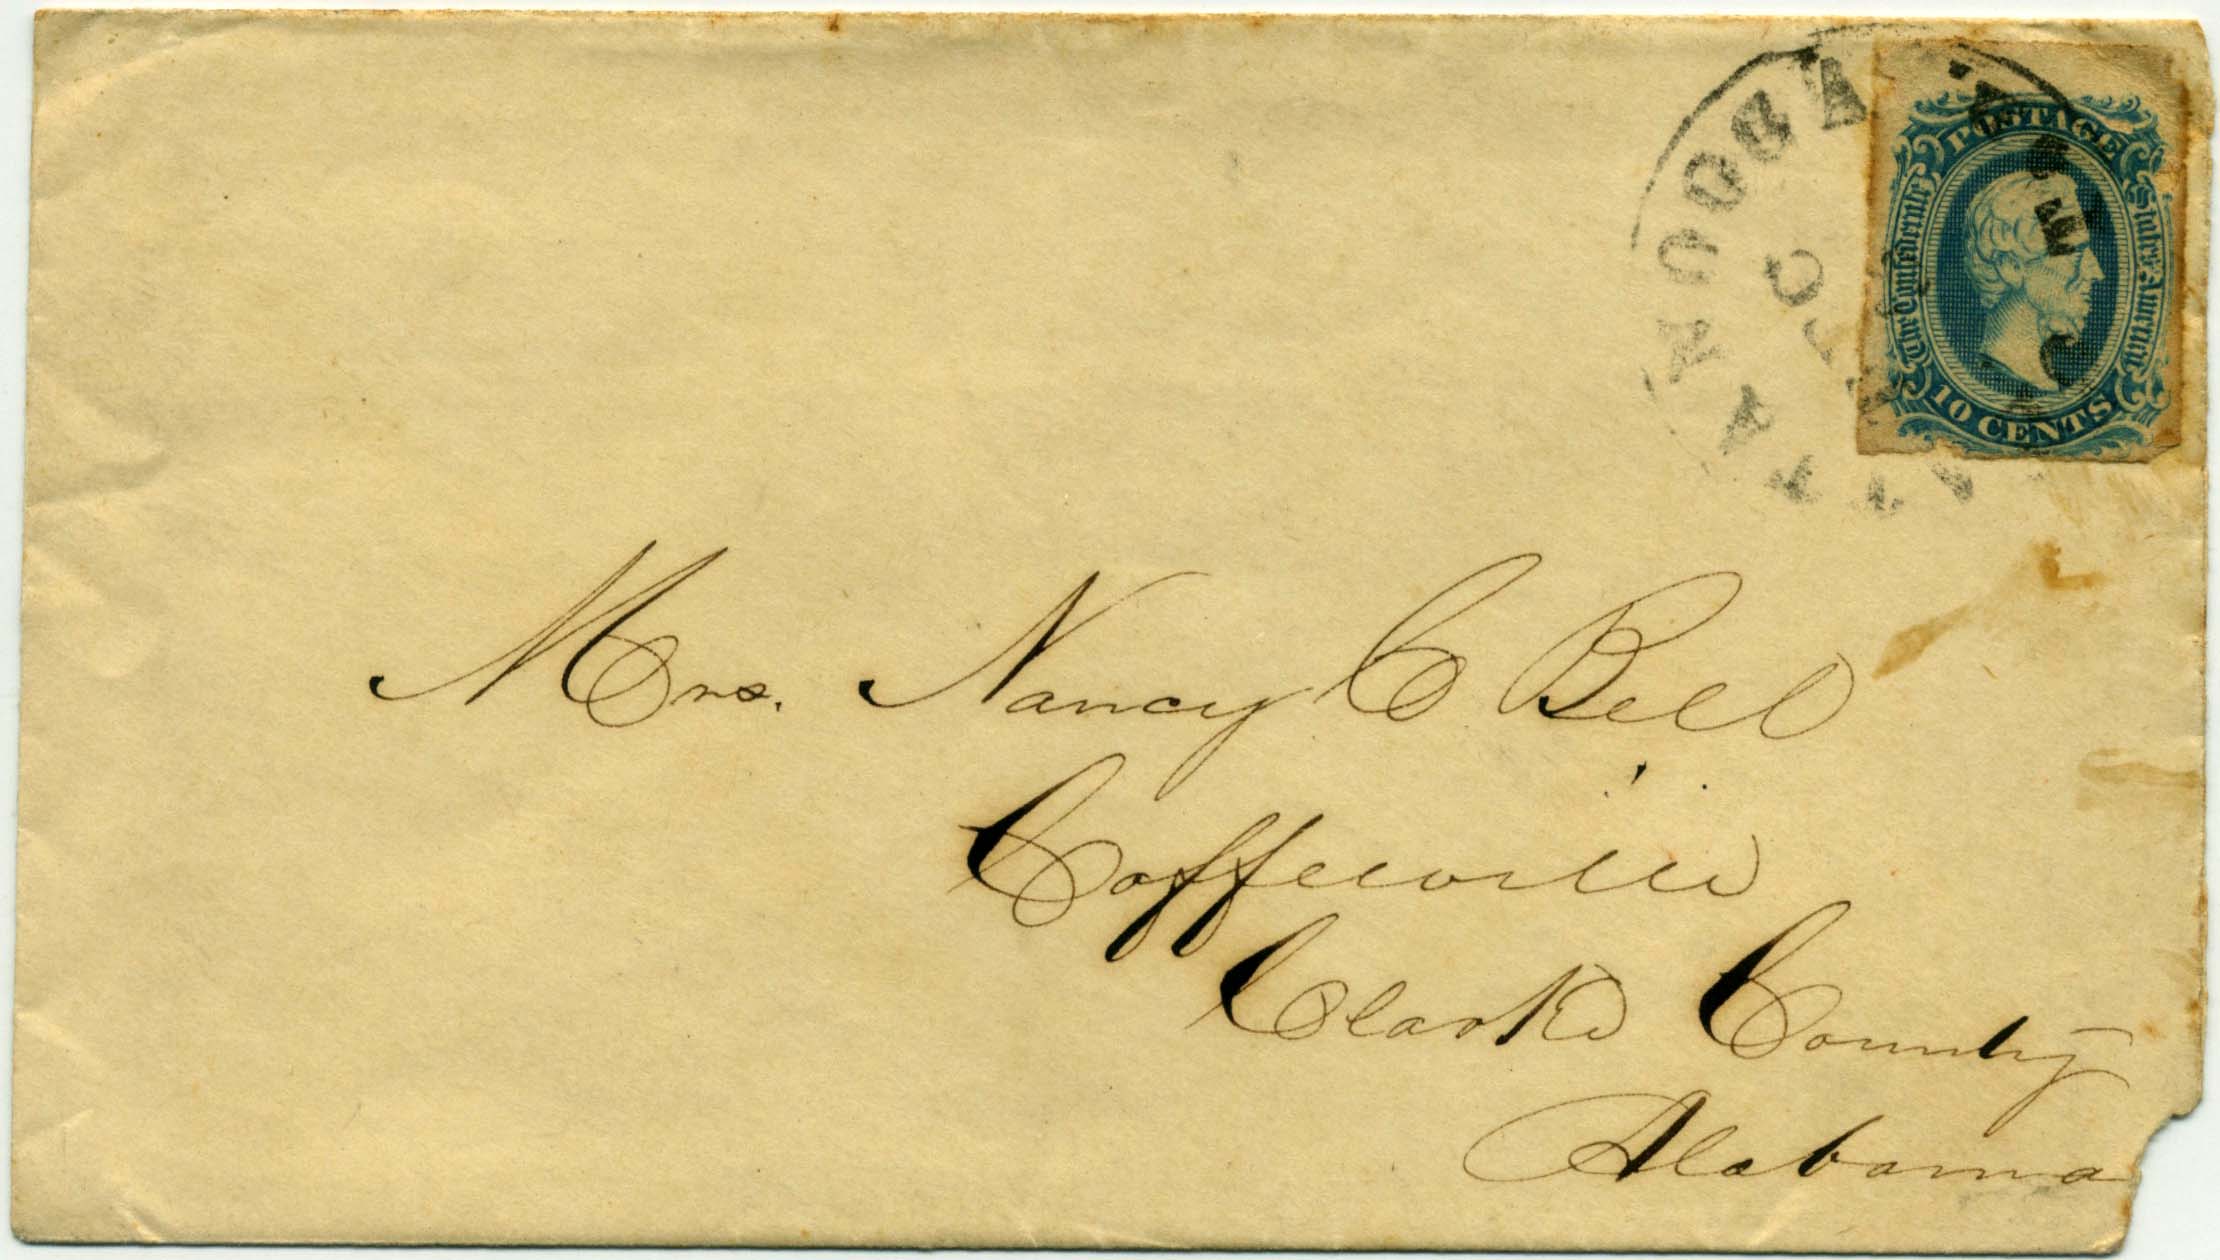 CHATTANOOGA
POSTAGE
The Confederate
States America
10 CENTS
Mrs. Nancy C Bell
Coffeeville
Clarke County
Alabama